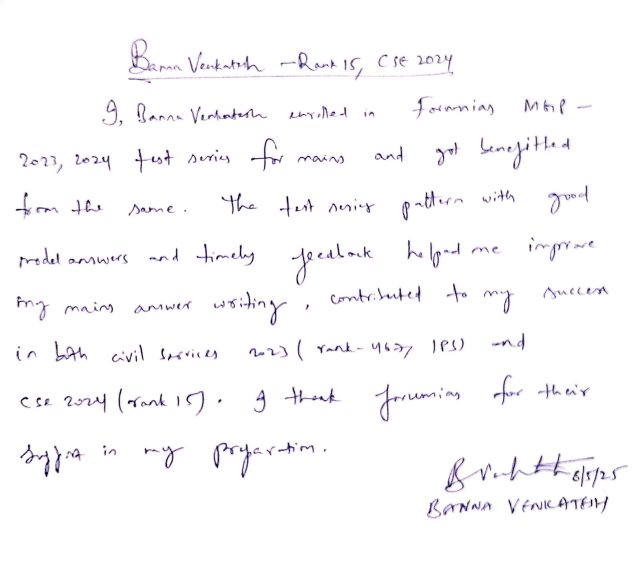 Banna Venkatesh - Rank 15, CSE 2024
I, Banna Venkatesh enrolled in Forumias MGP -
2023, 2024 test series for mains and got benefitted
from the same. The test series pattern with good
model answers and timely feedback helped me improve
my mains answer writing, contributed to my success
in both civil services 2023 (rank - 467, IPS) and
CSE 2024 (rank 15). I thank forumias for their
support in my preparation.
8/5/25
BANNA VENKATESH